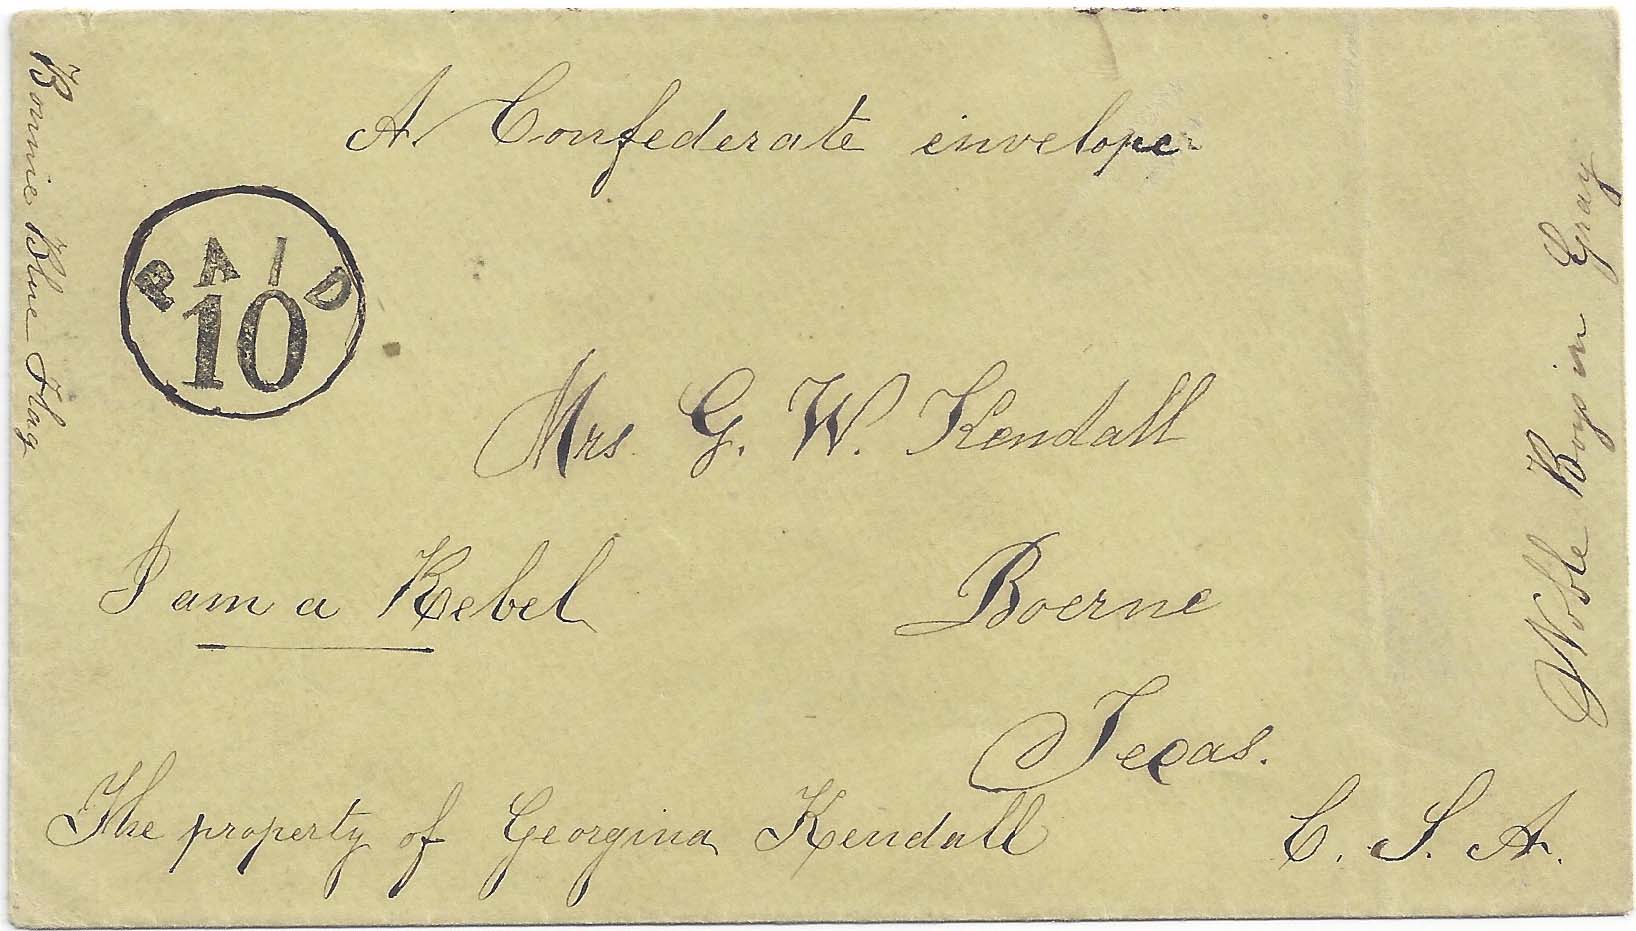 A Confederate envelope
Bonnie Blue Flag
PAID
10
Noble Boys in Gray
Mrs. G. W. Kendall
I am a Rebel
Boerne
Texas.
The property of Georgina Kendall
C. S. A.